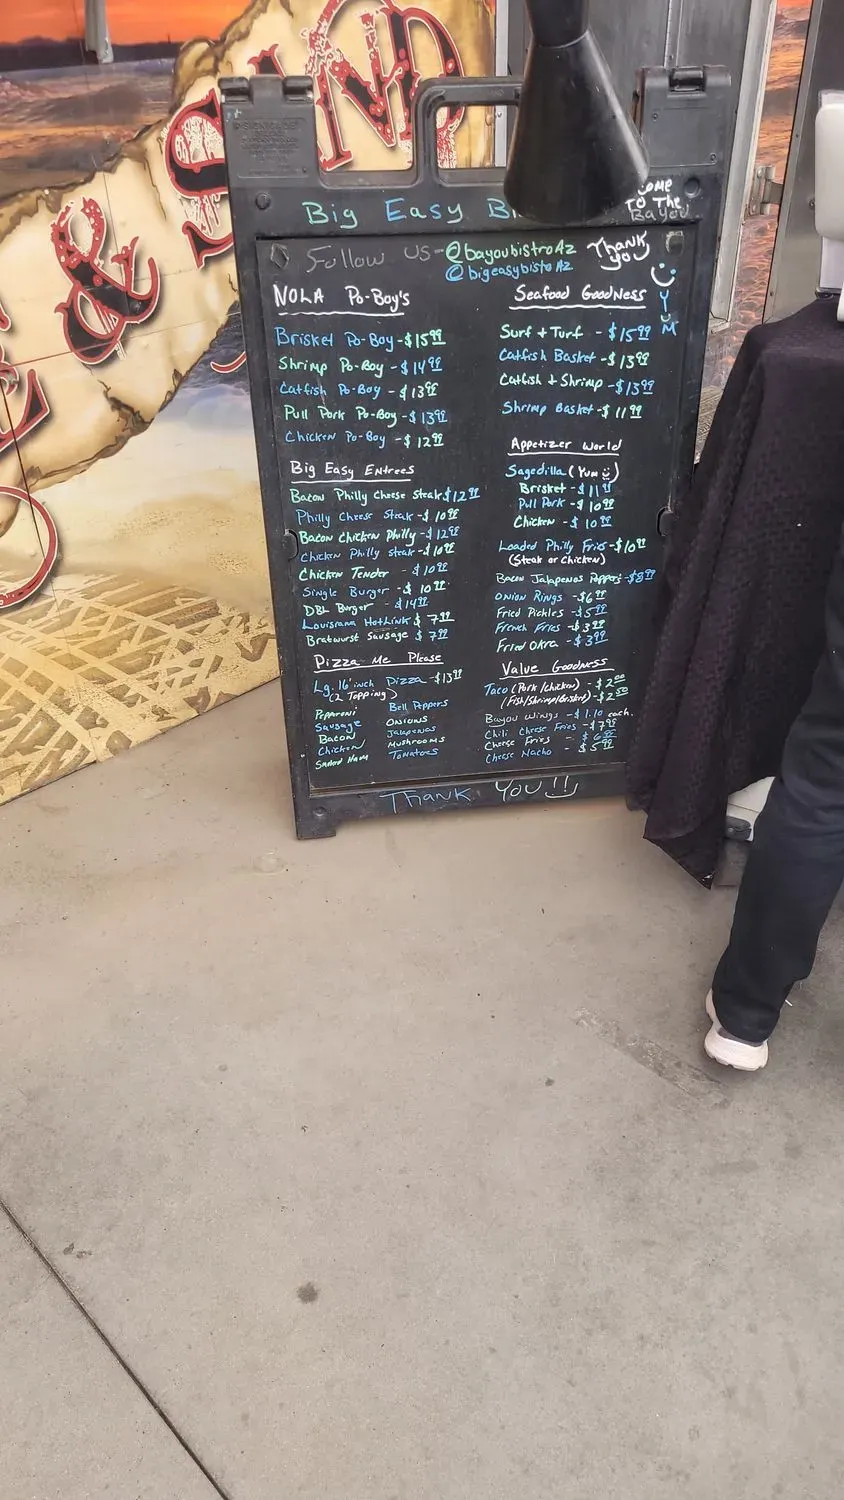 & SAND
Big Easy
Come
To The
Bayou
Follow us - @bayoubistroAz
@bigeasybistoAz
Thank
you
YUM
NOLA Po-Boy's
Brisket Po-Boy - $15.99
Shrimp Po-Boy - $14.99
Catfish Po-Boy - $13.99
Pull Pork Po-Boy - $13.99
Chicken Po-Boy - $12.99
Big Easy Entrees
Bacon Philly Cheese Steak $12.99
Philly Cheese Steak - $10.99
Bacon Chicken Philly - $12.99
Chicken Philly Steak - $10.99
Chicken Tender - $10.99
Single Burger - $10.99
DBL Burger - $14.99
Louisiana HotLink $7.99
Bratwurst Sausage $7.99
Pizza Me Please
Lg. 16 inch Pizza - $13.99
(2 Topping)
Pepparoni
Sausage
Bacon
Chicken
Bell Peppers
Onions
Jalapenos
Mushrooms
Tomatoes
Seafood Goodness
Surf + Turf - $15.99
Catfish Basket - $13.99
Catfish + Shrimp - $13.99
Shrimp Basket - $11.99
Appetizer World
Sagedilla (Yum)
Brisket - $11.99
Pull Pork - $10.99
Chicken - $10.99
Loaded Philly Fries - $10.99
(Steak or Chicken)
Bacon Jalapenos Poppers - $8.99
Onion Rings - $6.99
Fried Pickles - $5.99
French Fries - $3.99
Fried Okra - $3.99
Value Goodness
Taco (Pork/chicken) - $2.00
(Fish/Shrimp/Brisket) - $2.50
Bayou Wings - $1.10 each.
Chili Cheese Fries - $7.99
Cheese Fries - $6.99
Cheese Nacho - $5.99
Thank You!!